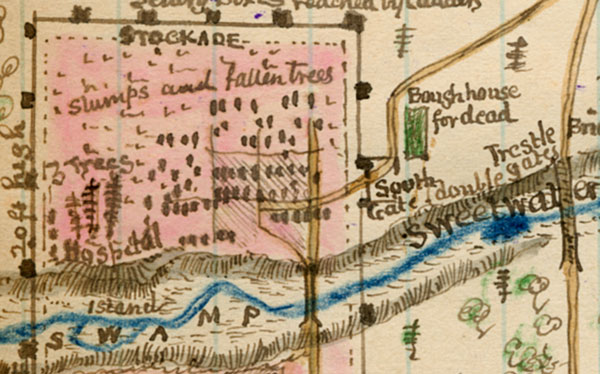 Sentry Boxes reached by ladders
STOCKADE
Stumps and fallen trees
Boughhouse
for dead
20 ft high
3 Trees
Trestle
Bri
South
Gate
double gates
Hospital
Sweetwater
Island
SWAMP